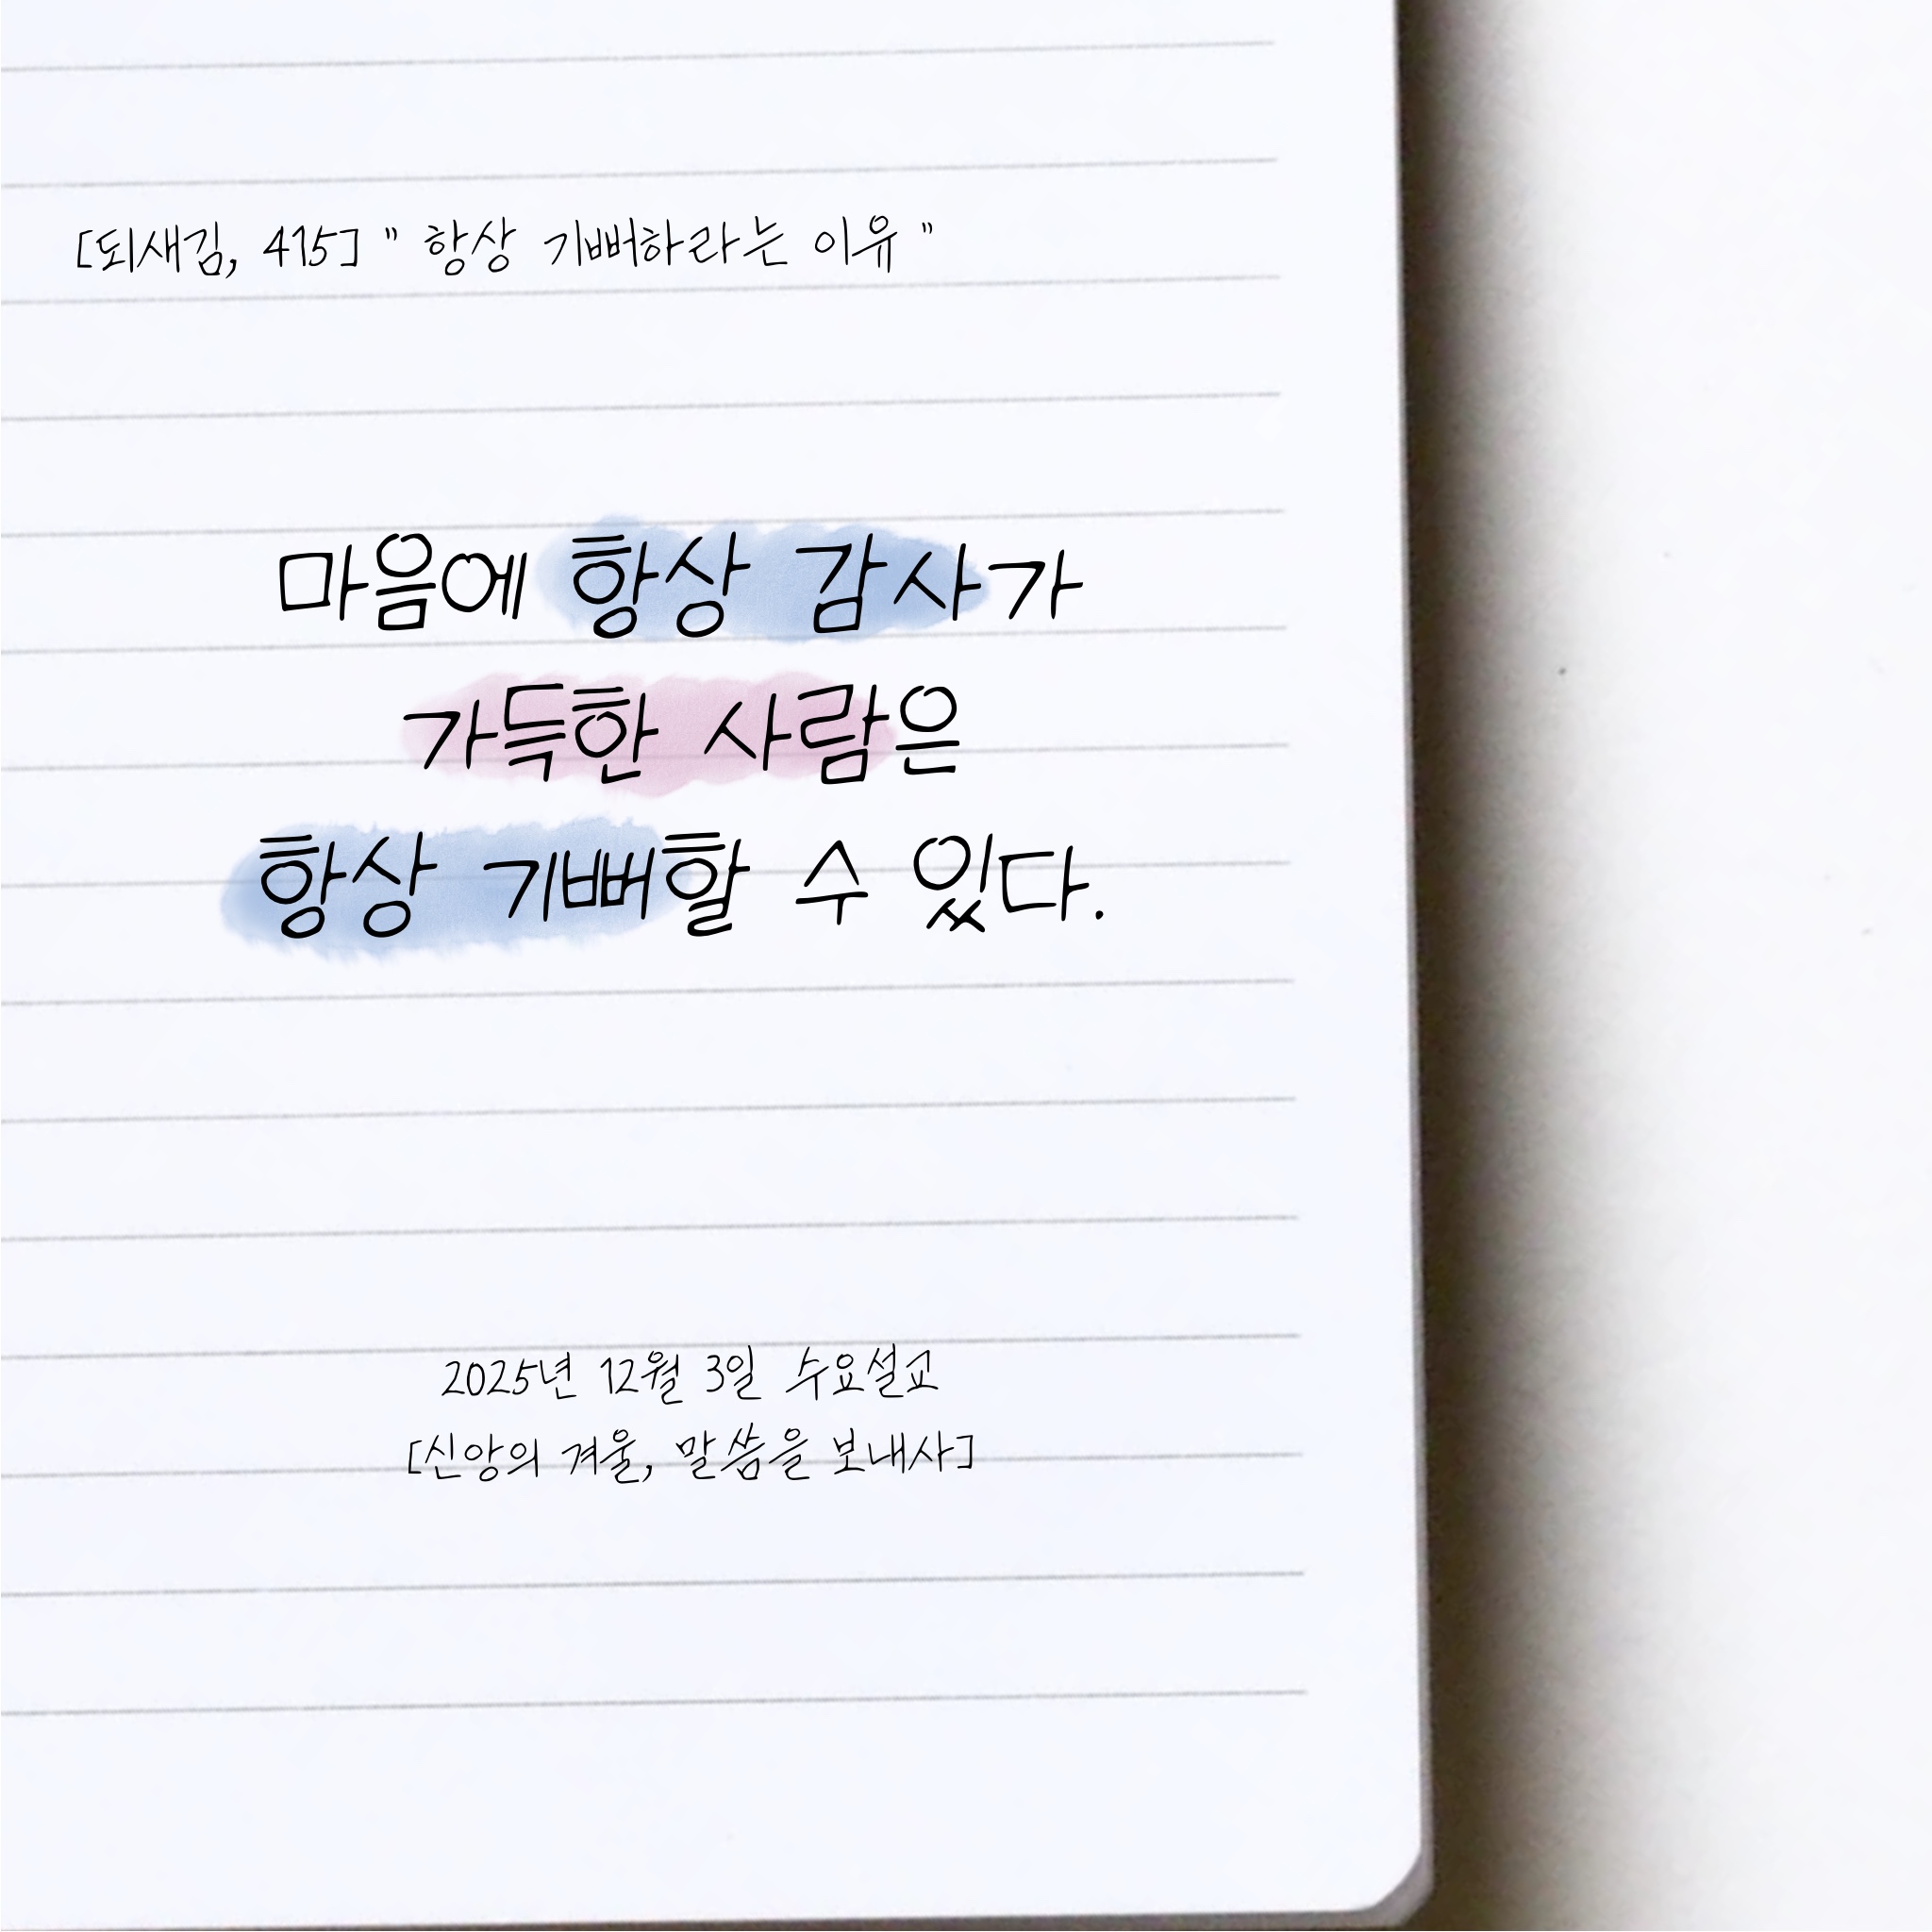 [되새김, 415] " 항상 기뻐하라는 이유 "
마음에 항상 감사가
가득한 사람은
항상 기뻐할 수 있다.
2025년 12월 3일 수요설교
[신앙의 겨울, 말씀을 보내사]